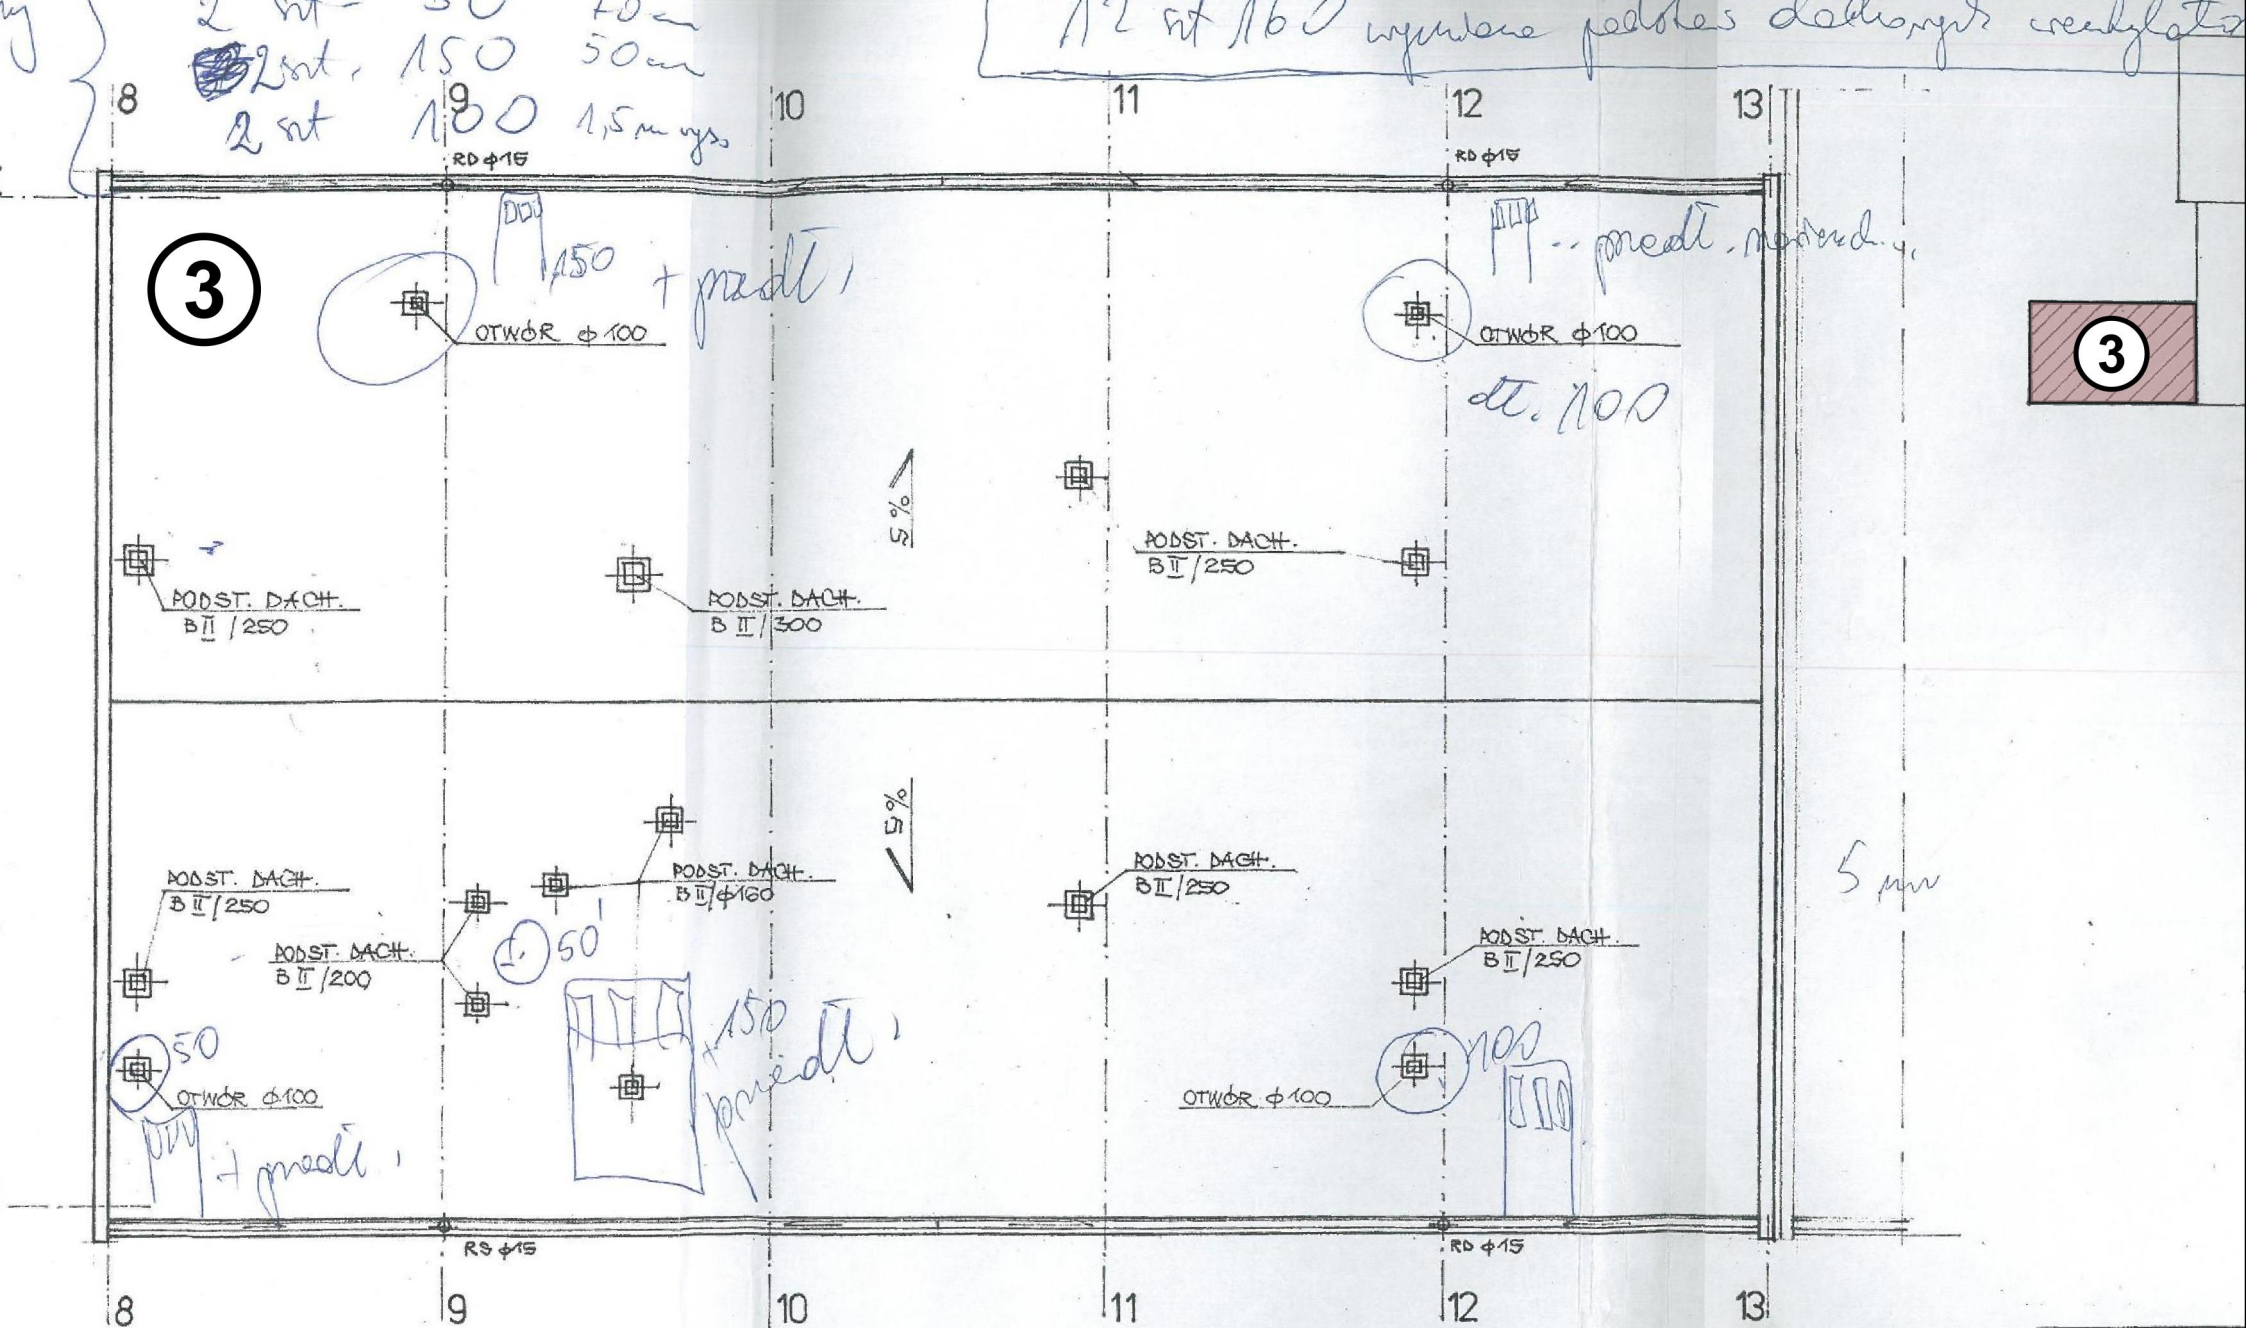 2 szt - 50 70cm
2szt. 150 50cm
2 szt 100 1,5m wys.
12 szt 160
8 9 10 11 12 13
RD φ15
RD φ15
3
150 + przedł.
OTWÓR φ100
OTWÓR φ100
dł. 100
3
5%
PODST. DACH.
B II/250
PODST. DACH.
B II /250
PODST. DACH.
B II/300
5%
PODST. DACH.
B II/φ160
PODST. DACH.
B II/250
PODST. DACH.
B II/250
PODST. DACH.
B II/200
50
PODST. DACH.
B II/250
50
150
przedł.
100
OTWÓR φ100
OTWÓR φ100
+ przedł.
RS φ15
RD φ15
8 9 10 11 12 13